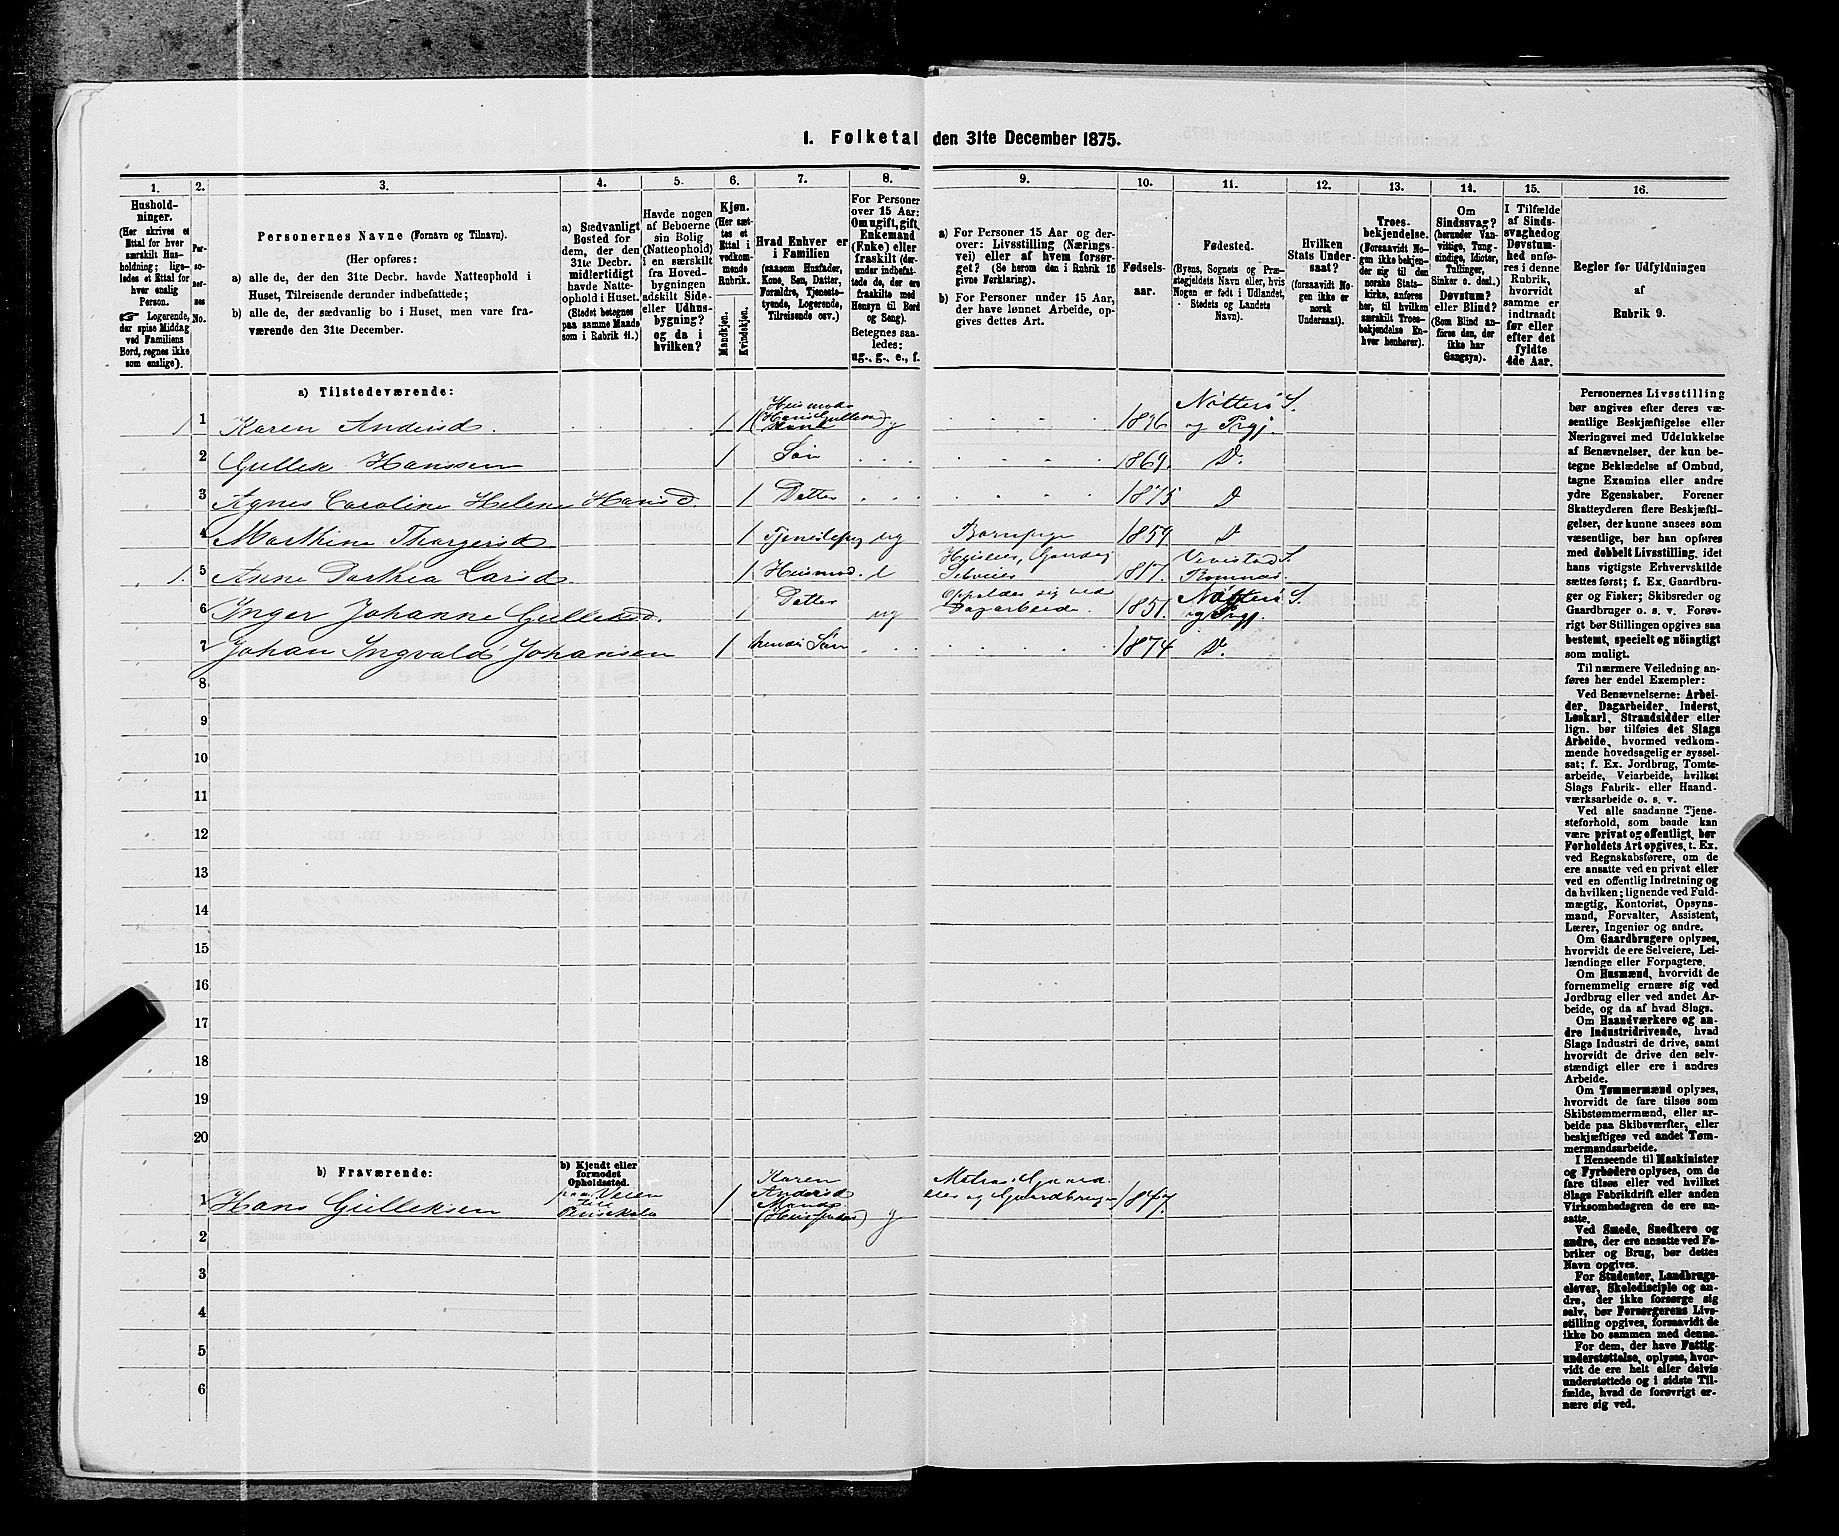 1. Folketal den 31te December 1875.
1.
2.
3.
4.
5.
6.
7.
8.
9.
10.
11.
12.
13.
14.
15.
16.
Hushold-
ninger.
(Her skrives et
Ettal for hver
særskilt Hus-
holdning; lige-
ledes et Ettal for
hver enslig
Person.
Logerende,
der spise Middag
ved Familiens
Bord, regnes ikke
som enslige).
Per-
so-
ner-
nes
No.
Personernes Navne (Fornavn og Tilnavn).
(Her opføres:
a) alle de, der den 31te Decbr. havde Natteophold i
Huset, Tilreisende derunder indbefattede;
b) alle de, der sædvanlig bo i Huset, men vare fra-
værende den 31te December.
a) Sædvanligt
Bosted for
dem, der den
31te Decbr.
midlertidigt
havde Natte-
ophold i Huset.
(Stedet betegnes
paa samme Maade
som i Rubrik 11.)
Havde nogen
af Beboerne
sin Bolig
(Natteophold)
i en særskilt
fra Hoved-
bygningen
adskilt Side-
eller Udhus-
bygning?
og da i
hvilken?
Kjøn.
(Her sæt-
tes et
Ettal i
vedkom-
mende
Rubrik.
Mandkjøn.
Kvindekjøn.
Hvad Enhver er
i Familien
(saasom Husfader,
Kone, Søn, Datter,
Forældre, Tjeneste-
tyende, Logerende,
Tilreisende osv.)
For Personer
over 15 Aar:
Om ugift, gift,
Enkemand
(Enke) eller
fraskilt (der-
under indbefat-
tede de, der ere
fraskilte med
Hensyn til Bord
og Seng).
Betegnes saa-
ledes:
ug., g., e., f.
a) For Personer 15 Aar og der-
over: Livsstilling (Nærings-
vei) eller af hvem forsør-
get? (Se herom den i Rubrik 16
givne Forklaring).
b) For Personer under 15 Aar,
der have lønnet Arbeide, op-
gives dettes Art.
Fødsels-
aar.
Fødested.
(Byens, Sognets og Præ-
stegjeldets Navn eller, hvis
Nogen er født i Udlandet,
Stedets og Landets
Navn).
Hvilken
Stats Under-
saat?
(forsaavidt No-
gen ikke er
norsk
Undersaat).
Troes-
bekjendelse.
(Forsaavidt No-
gen ikke bekjen-
der sig til den
norske Stats-
kirke, anføres
her, til hvilken
særskilt Troes-
bekjendelse En-
hver henhører).
Om
Sindssvag?
(herunder Van-
vittige, Tung-
sindige, Idioter,
Tullinger,
Sinker o. desl.)
Døvstum?
eller Blind?
(Som Blind an-
føres den, der
ikke har
Gangsyn).
I Tilfælde
af Sinds-
svaghed og
Døvstum-
hed anfø-
res i denne
Rubrik,
hvorvidt
samme er
indtraadt
før eller
efter det
fyldte
4de Aar.
Regler for Udfyldningen
af
Rubrik 9.
a) Tilstedeværende:
1 1 Karen Andersd. 1 g 1846 Nötterö S. og Prgj.
2 Gullik Hanssen 1 Søn 1869. D.
3 Agnes Caroline Helene Hansd. 1 Datter 1875 D
4 Marthine Thorgersd 1 ug Barnepige 1859 D
1. 5 Anne Dorthea Larsd 1 e 1817.
6 Inger Johanne Gulliksd. 1 Datter ug Opholder sig ved Dagarbeide. 1851. Nötterö S. og Prgj.
7 Johan Ingvald Johansen 1 hendes Søn 1874 D.
8
9
10
11
12
13
14
15
16
17
18
19
20
b) Fraværende:
b) Kjendt eller
formodet
Opholdssted.
1 Hans Gulleksen paa Veien til 1 Karen Andersd Mand (Huusfader) g Matros og Gaardbruger 1847.
2
3
4
5
6
Personernes Livsstilling
bør angives efter deres væ-
sentlige Beskjæftigelse eller
Næringsvei med Udelukkelse
af Benævnelser, der kun be-
tegne Beklædelse af Ombud,
tagne Examina eller andre
ydre Egenskaber. Forener
Skatteyderen flere Beskjæfti-
gelser, der kunne ansees som
væsentlige, bør han opføres
med dobbelt Livsstilling, idet
hans vigtigste Erhvervskilde
sættes først; f. Ex. Gaardbru-
ger og Fisker; Skibsreder og
Gaardbruger o. s. v. Forøv-
rigt bør Stillingen opgives saa
bestemt, specielt og nöiagtigt
som muligt.
Til nærmere Veiledning an-
føres her endel Exempler:
Ved Benævnelserne: Arbei-
der, Dagarbeider, Inderst,
Løskarl, Strandsidder eller
lign. bør tilføies det Slags
Arbeide, hvormed vedkom-
mende hovedsagelig er syssel-
sat; f. Ex. Jordbrug, Tomte-
arbeide, Veiarbeide, hvilket
Slags Fabrik- eller Haand-
værksarbeide o. s. v.
Ved alle saadanne Tjene-
steforhold, som baade kan
være privat og offentligt, bør
Forholdets Art opgives, t. Ex.
ved Regnskabsførere, om de
ere ansatte ved en privat eller
ved en offentlig Indretning og
da hvilken; lignende ved Fuld-
mægtig, Kontorist, Opsyns-
mand, Forvalter, Assistent,
Lærer, Ingeniør og andre.
Om Gaardbrugere oplyses,
hvorvidt de ere Selveiere, Lei-
lændinge eller Forpagtere.
Om Husmænd, hvorvidt de
fornemmelig ernære sig ved
Jordbrug eller ved andet Ar-
beide, og da af hvad Slags.
Om Haandværkere og an-
dre Industridrivende, hvad
Slags Industri de drive, samt
hvorvidt de drive den selv-
stændigt eller ere i andres
Arbeide.
Om Tømmermænd oplyses,
hvorvidt de fare tilsøs som
Skibstømmermænd, eller ar-
beide paa Skibsværfter, eller
beskjæftiges ved andet Tøm-
mermandsarbeide.
I Henseende til Maskinister
og Fyrbødere oplyses, om de
fare tilsøs eller ved hvilket
Slags Fabrikdrift eller anden
Virksomhedsgren de ere an-
satte.
Ved Smede, Snedkere og
andre, der ere ansatte ved Fa-
briker og Brug, bør dettes
Navn opgives.
For Studenter, Landbrugs-
elever, Skoledisciple og an-
dre, der ikke forsørge sig
selv, bør Forsørgerens Livs-
stilling opgives, forsaavidt de
ikke bo sammen med denne.
For dem, der have Fattig-
understøttelse, oplyses, hvor-
vidt de ere helt eller delvis
understøttede og i sidste Til-
fælde, hvad de forøvrigt er-
nære sig ved.